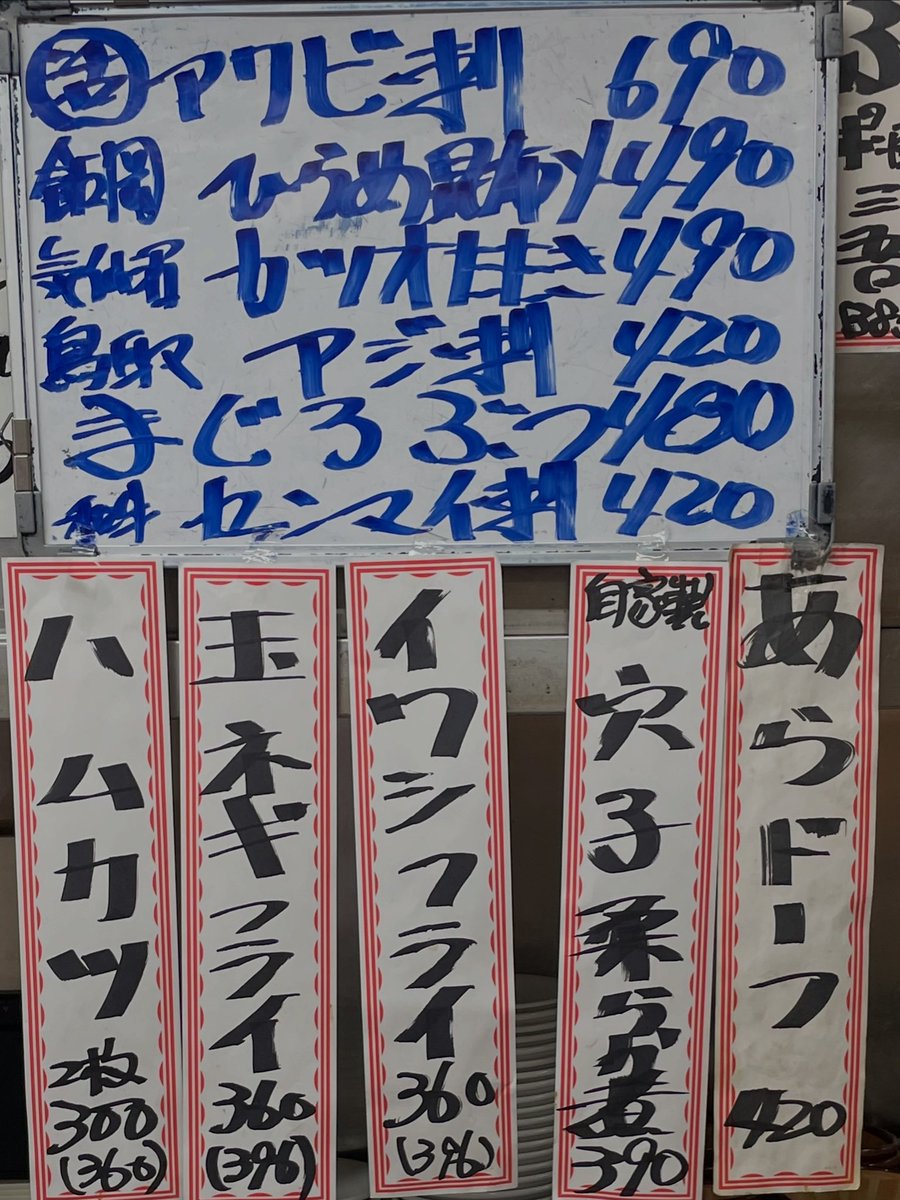 活 アワビ刺 690
飯岡 ひらめ昆布〆 490
気仙沼 カツオたたき 490
鳥取 アジ刺 420
まぐろぶつ 480
センマイ刺 420
あらドーフ 420
自家製 穴子柔らか煮 390
イワシフライ 360 (396)
玉ネギフライ 360 (396)
ハムカツ 2枚 300 (360)